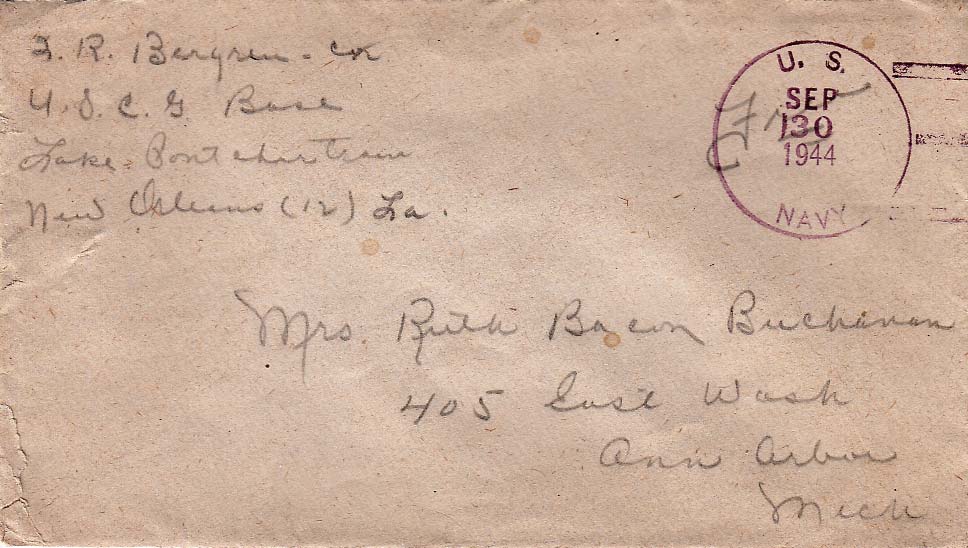 F. R. Bergren - Cox
U.S.C.G Base
Lake Pontchartrain
New Orleans (12) La.
Free
U. S.
SEP
130
1944
NAVY
Mrs. Ruth Bacon Buchanan
405 East Wash
Ann Arbor
Mich